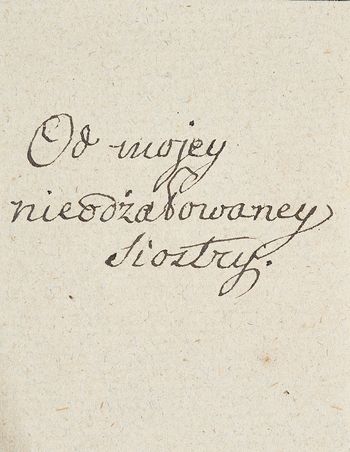 Od mojey
nieodżałowaney
siostry.